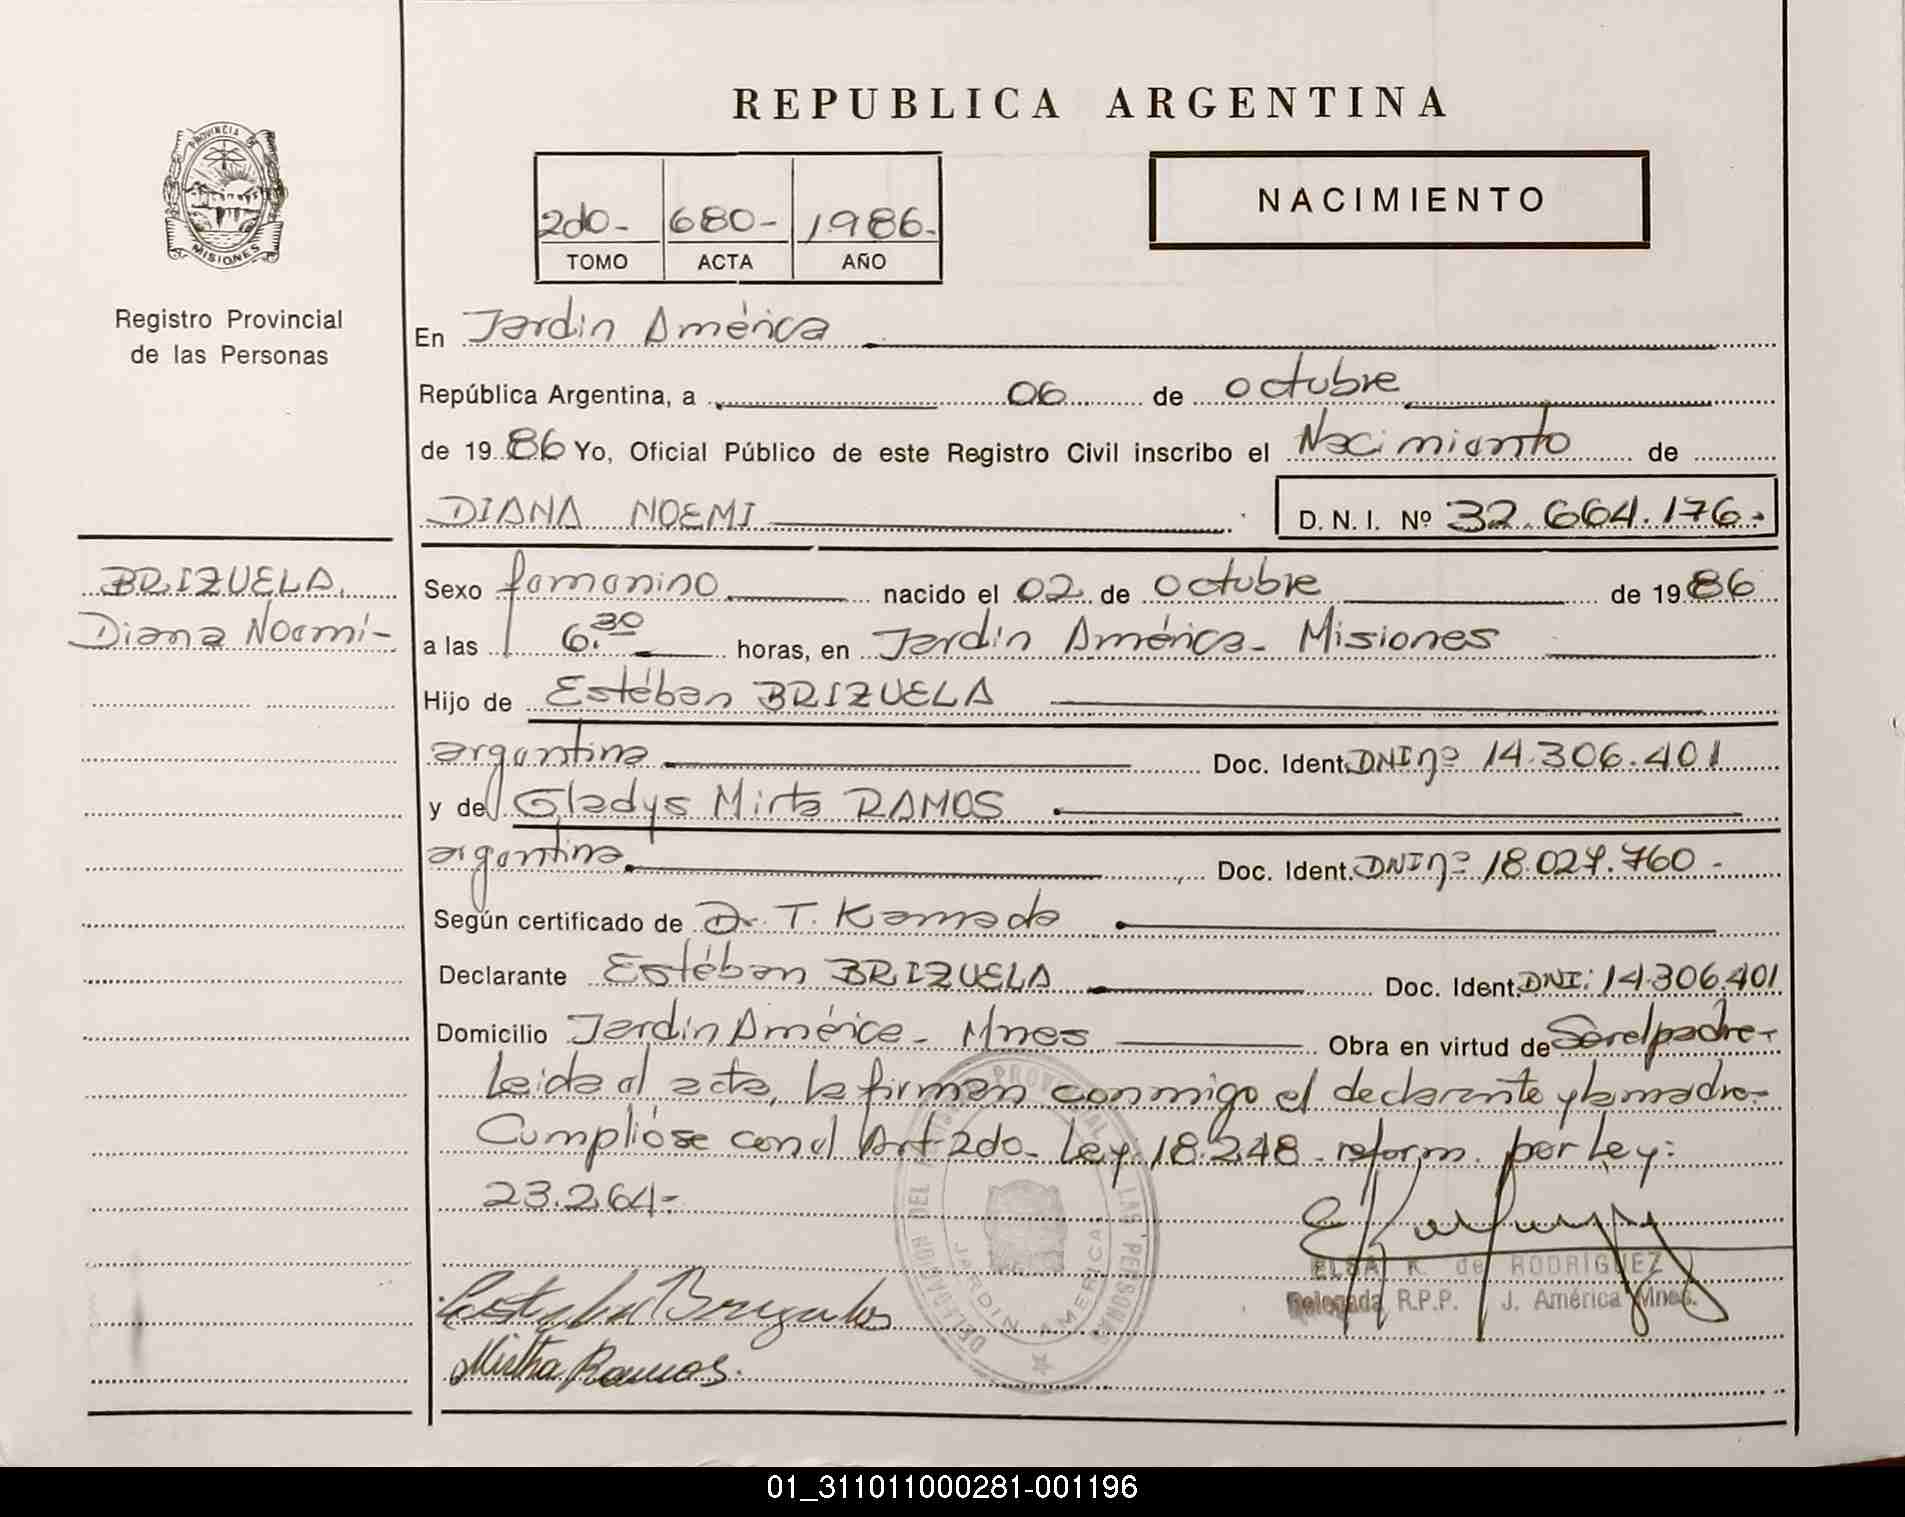 REPUBLICA ARGENTINA
PROVINCIA DE MISIONES
Registro Provincial
de las Personas
2do- 680- 1986.-
TOMO ACTA AÑO
NACIMIENTO
En Jardin América
República Argentina, a 06 de octubre
de 1986 Yo, Oficial Público de este Registro Civil inscribo el Nacimiento de
DIANA NOEMI D. N. I. Nº 32.664.176.-
BRIZUELA.
Diana Noemí-
Sexo femenino nacido el 02 de octubre de 1986
a las 6.30 horas, en Jardin América- Misiones
Hijo de Estéban BRIZUELA
argentina Doc. Ident. DNI nº 14.306.401
y de Gladys Mirta RAMOS
argentina Doc. Ident. DNI nº 18.027.760-
Según certificado de Dr. T. Kamada
Declarante Estéban BRIZUELA Doc. Ident. DNI: 14.306.401
Domicilio Jardin América- Mnes Obra en virtud de Ser el padre-
Leida el acta, la firman conmigo el declarante y la madre-
Cumplióse con el Art 2do- Ley 18.248- reform. por Ley:
23.264-
DELEGACION DEL REGISTRO PROVINCIAL DE LAS PERSONAS
JARDIN AMERICA
ELSA K. de RODRIGUEZ
Delegada R.P.P. J. América Mnes.
Mirtha Ramos.
01_311011000281-001196